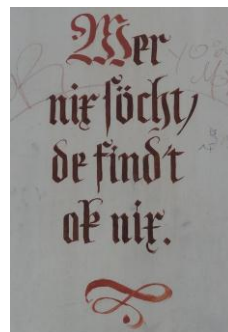 Wer
nix söcht,
de find't
ok nix.